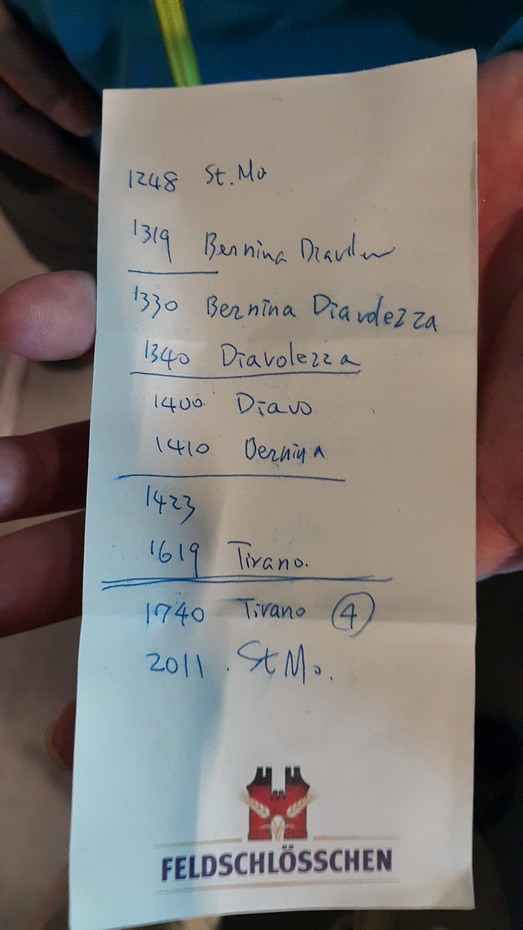 1248 St.Mo
1319 Bernina
1330 Bernina Diavolezza
1340 Diavolezza
1400 Diavo
1410 Bernina
1423
1619 Tirano.
1740 Tirano 4
2011 St Mo.
FELDSCHLÖSSCHEN